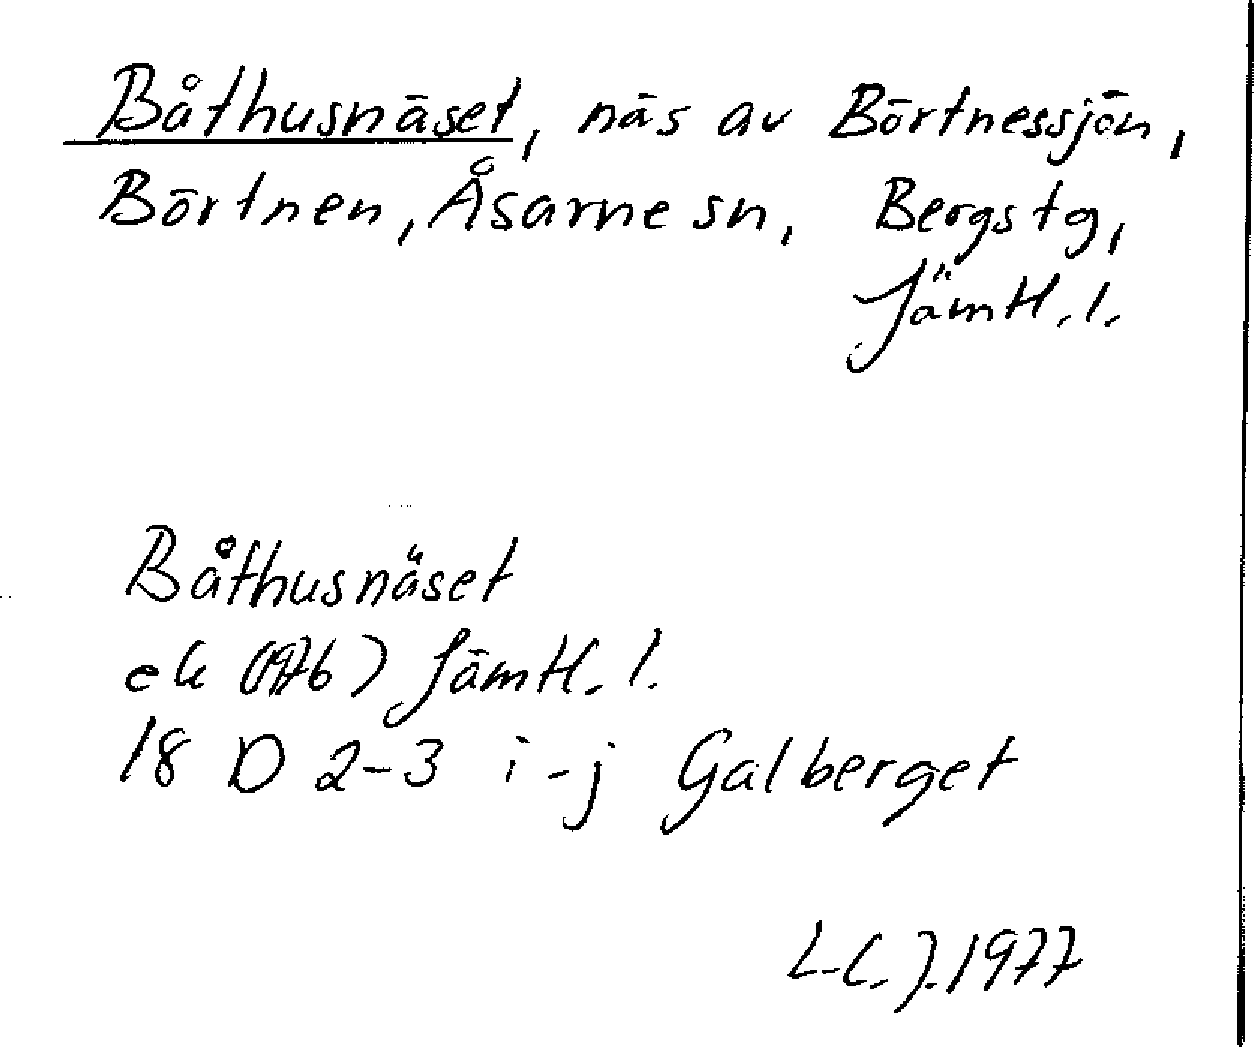 Båthusnäset, näs av Börtnessjön,
Börtnen, Åsarne sn, Bergs tg,
Jämtl. l.
Båthusnäset
ek (1976) Jämtl. l.
18 D 2-3 i-j Galberget
L.C.J. 1977